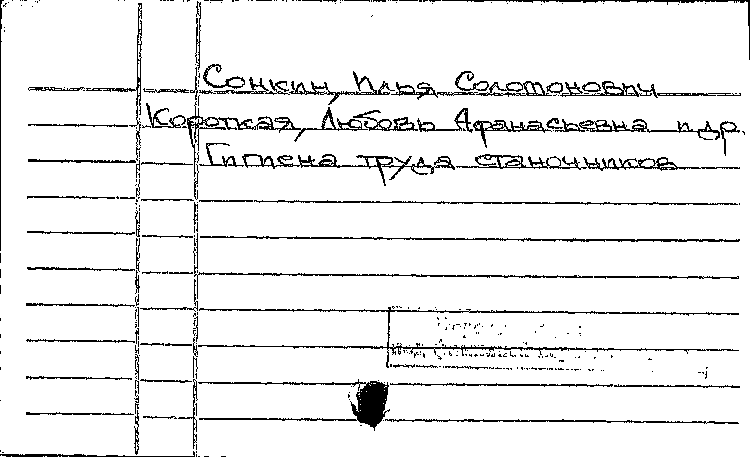 Сонкин, Илья Соломонович
Короткая, Любовь Афанасьевна и др.
Гигиена труда станочников